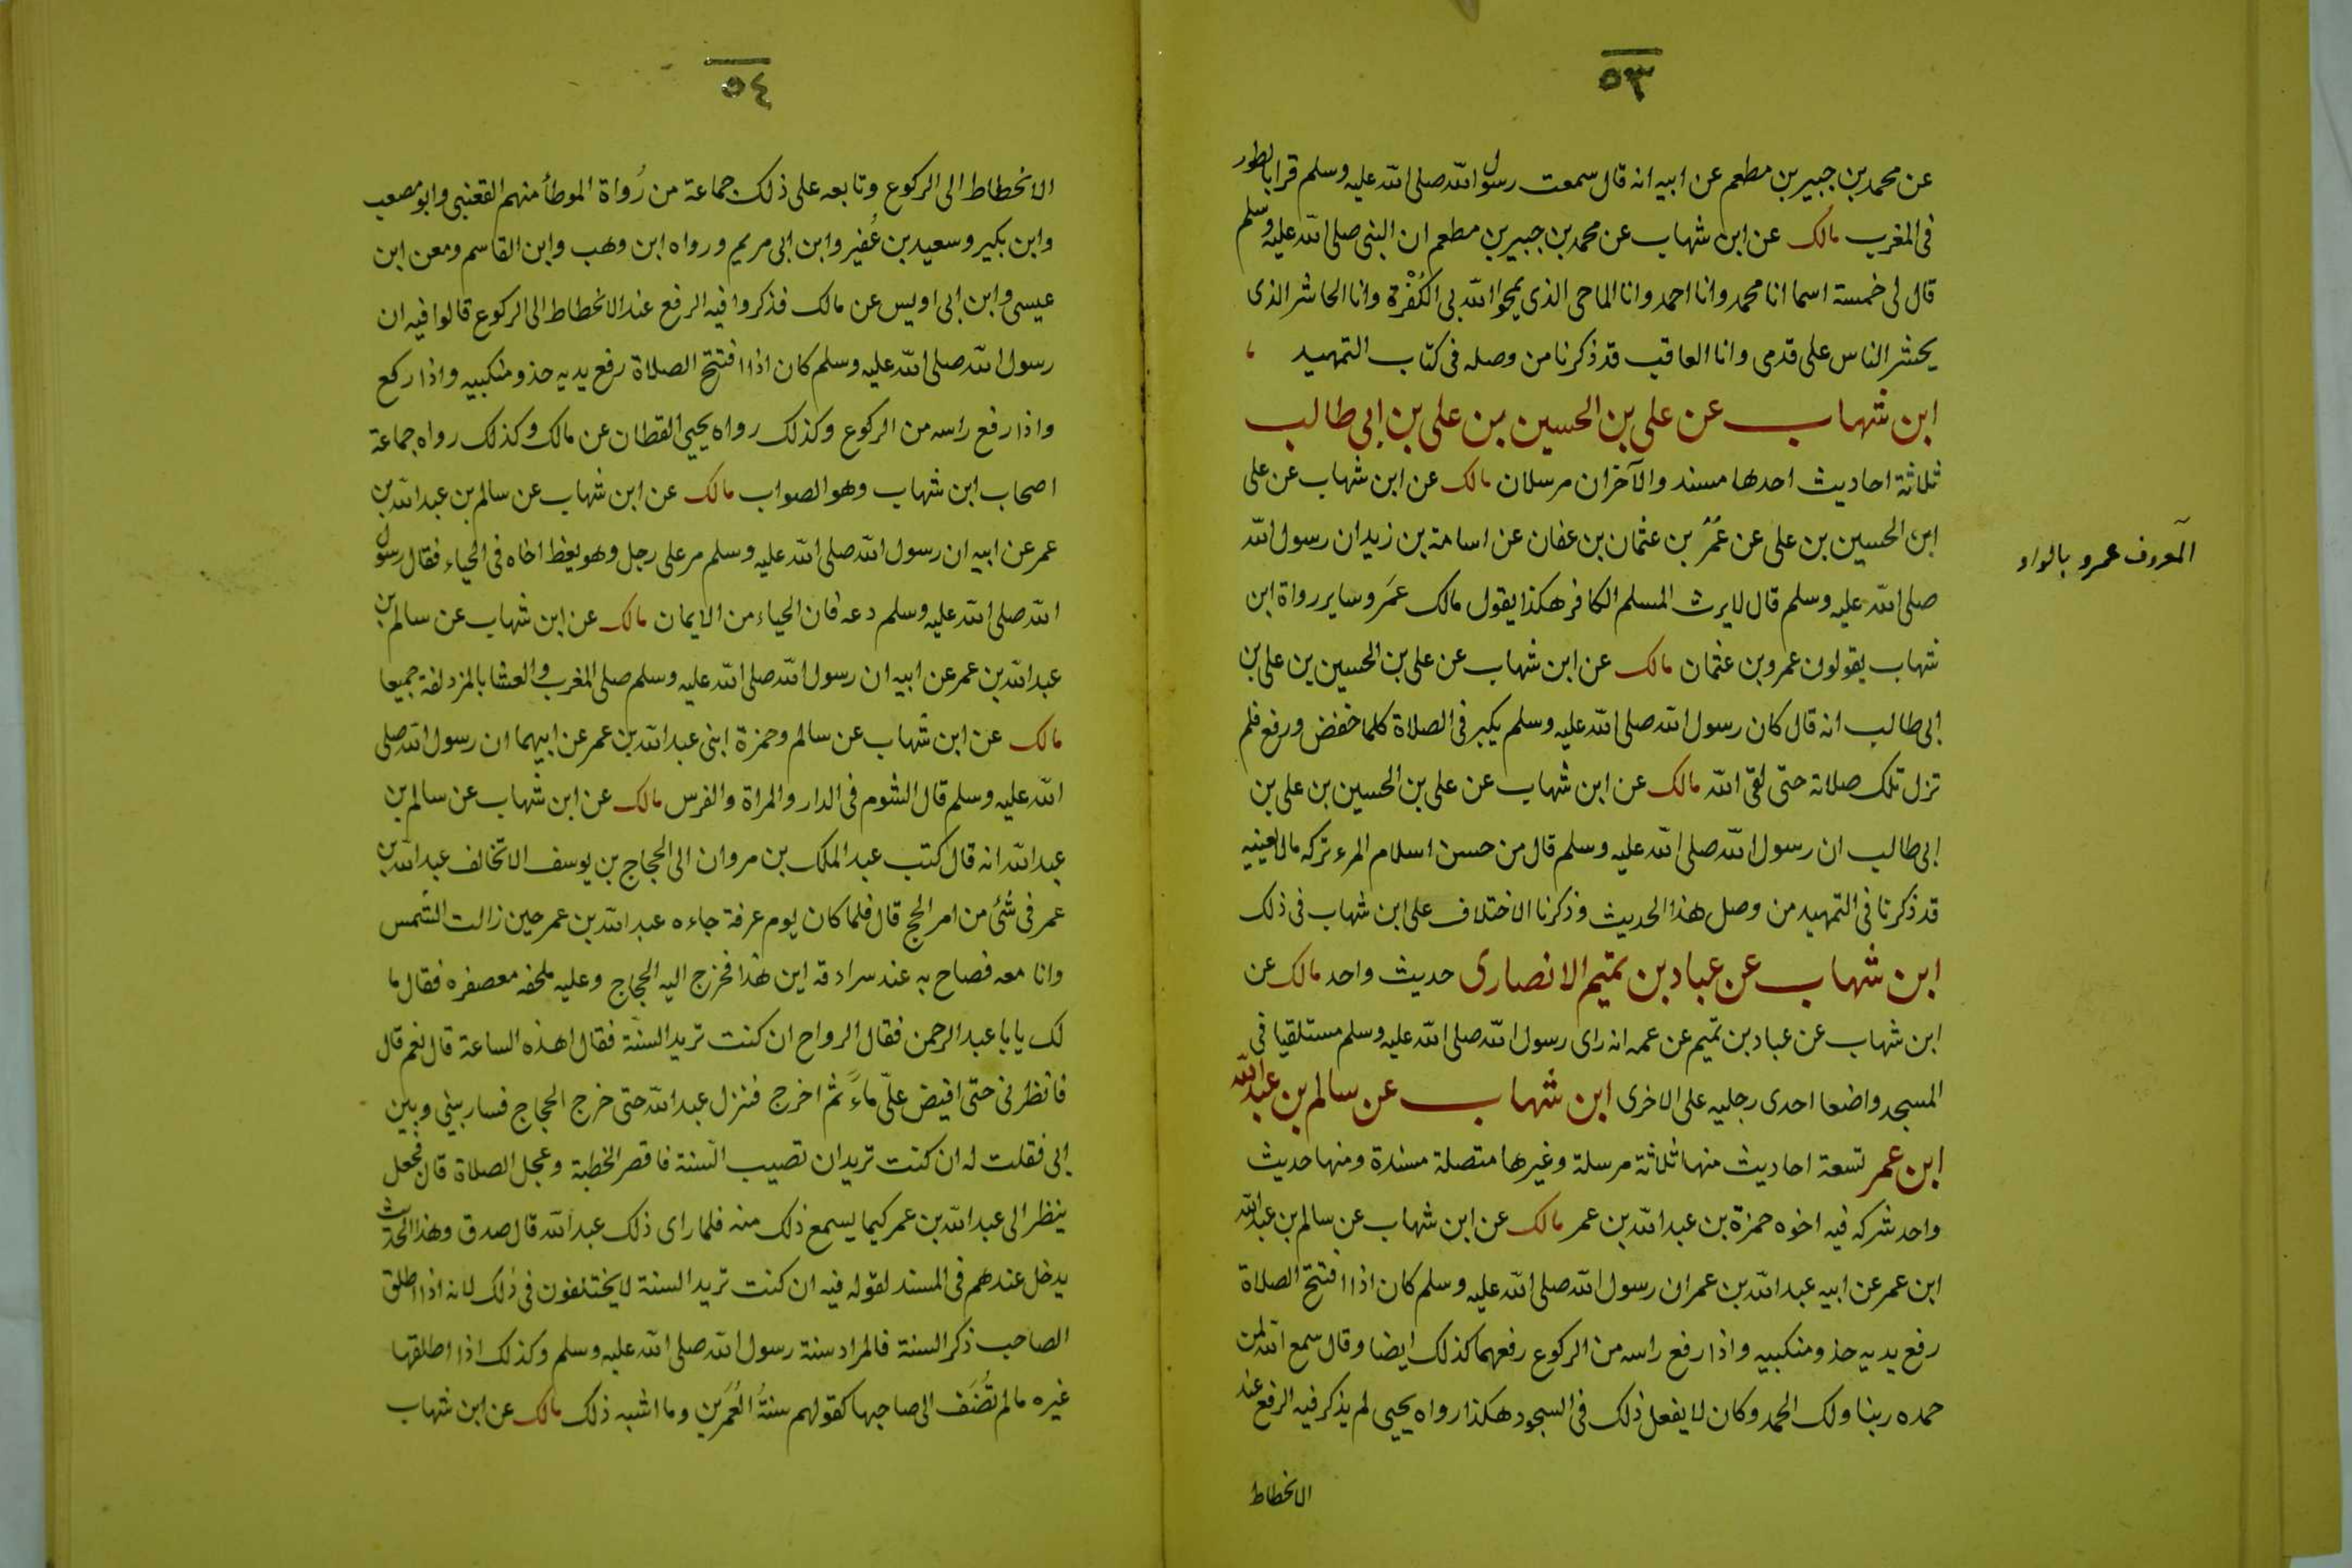 ٥٣
عن محمد بن جبير بن مطعم عن ابيه انه قال سمعت رسول الله صلى الله عليه وسلم قرا بالطور
فى المغرب مالك عن ابن شهاب عن محمد بن جبير بن مطعم ان النبى صلى الله عليه وسلم
قال لى خمسة اسما انا محمد وانا احمد وانا الماحى الذى يمحوا الله بى الكُفْرة وانا الحاشر الذى
يحشر الناس على قدمى وانا العاقب قد ذكرنا من وصله فى كتاب التمهيد
ابن شهاب عن على بن الحسين بن على بن ابى طالب
ثلاثة احاديث احدها مسند والآخران مرسلان مالك عن ابن شهاب عن على
ابن الحسين بن على عن عُمَر بن عثمان بن عفان عن اسامة بن زيد ان رسول الله
المعروف عمرو بالواو
صلى الله عليه وسلم قال لا يرث المسلم الكافر هكذا يقول مالك عمَر وساير رواة ابن
شهاب يقولون عمرو بن عثمان مالك عن ابن شهاب عن على بن الحسين بن على بن
ابى طالب انه قال كان رسول الله صلى الله عليه وسلم يكبر فى الصلاة كلما خفض ورفع فلم
تزل تلك صلاته حتى لقى الله مالك عن ابن شهاب عن على بن الحسين بن على بن
ابى طالب ان رسول الله صلى الله عليه وسلم قال من حسن اسلام المرء تركه مالا يعنيه
قد ذكرنا فى التمهيد من وصل هذا الحديث وذكرنا الاختلاف على ابن شهاب فى ذلك
ابن شهاب عن عباد بن تميم الانصارى حديث واحد مالك عن
ابن شهاب عن عباد بن تميم عن عمه انه راى رسول الله صلى الله عليه وسلم مستلقيا فى
المسجد واضعا احدى رجليه على الاخرى ابن شهاب عن سالم بن عبد الله
ابن عمر تسعة احاديث منها ثلاثة مرسلة وغيرها متصلة مسندة ومنها حديث
واحد شركه فيه اخوه حمزة بن عبد الله بن عمر مالك عن ابن شهاب عن سالم بن عبد الله
ابن عمر عن ابيه عبد الله بن عمر ان رسول الله صلى الله عليه وسلم كان اذا افتتح الصلاة
رفع يديه حذو منكبيه واذا رفع راسه من الركوع رفعهما كذلك ايضا وقال سمع الله لمن
حمده ربنا ولك الحمد وكان لا يفعل ذلك فى السجود هكذا رواه يحيى لم يذكر فيه الرفع عند
الانحطاط
٥٤
الانحطاط الى الركوع وتابعه على ذلك جماعة من رُواة الموطأ منهم القعنبى وابو مصعب
وابن بكير وسعيد بن عُفير وابن ابى مريم ورواه ابن وهب وابن القاسم ومعن ابن
عيسى وابن ابى اويس عن مالك فذكروا فيه الرفع عند الانحطاط الى الركوع قالوا فيه ان
رسول الله صلى الله عليه وسلم كان اذا افتتح الصلاة رفع يديه حذو منكبيه واذا ركع
واذا رفع راسه من الركوع وكذلك رواه يحيى القطان عن مالك وكذلك رواه جماعة
اصحاب ابن شهاب وهو الصواب مالك عن ابن شهاب عن سالم بن عبد الله بن
عمر عن ابيه ان رسول الله صلى الله عليه وسلم مر على رجل وهو يعظ اخاه فى الحياء فقال رسول
الله صلى الله عليه وسلم دعه فان الحياء من الايمان مالك عن ابن شهاب عن سالم بن
عبد الله بن عمر عن ابيه ان رسول الله صلى الله عليه وسلم صلى المغرب والعشا بالمزدلفة جميعا
مالك عن ابن شهاب عن سالم وحمزة ابنى عبد الله بن عمر عن ابيهما ان رسول الله صلى
الله عليه وسلم قال الشوم فى الدار والمراة والفرس مالك عن ابن شهاب عن سالم بن
عبد الله انه قال كتب عبد الملك بن مروان الى الحجاج بن يوسف الا تخالف عبد الله بن
عمر فى شئ من امر الحج قال فلما كان يوم عرفة جاءه عبد الله بن عمر حين زالت الشمس
وانا معه فصاح به عند سرادقه اين هذا فخرج اليه الحجاج وعليه ملحفه معصفره فقال ما
لك يا با عبد الرحمن فقال الرواح ان كنت تريد السنّة فقال اهذه الساعة قال نعم قال
فانظرنى حتى افيض علىّ ماءً ثم اخرج فنزل عبد الله حتى خرج الحجاج فسار بينى وبين
ابى فقلت له ان كنت تريد ان تصيب السّنة فاقصر الخطبة وعجل الصلاة قال فجعل
ينظر الى عبد الله بن عمر كيما يسمع ذلك منه فلما راى ذلك عبد الله قال صدق وهذا الحديث
يدخل عندهم فى المسند لقوله فيه ان كنت تريد السنة لا يختلفون فى ذلك لانه اذا اطلق
الصاحب ذكر السنة فالمراد سنة رسول الله صلى الله عليه وسلم وكذلك اذا اطلقها
غيره ما لم تُضَف الى صاحبها كقولهم سنةُ العُمَرين وما اشبه ذلك مالك عن ابن شهاب